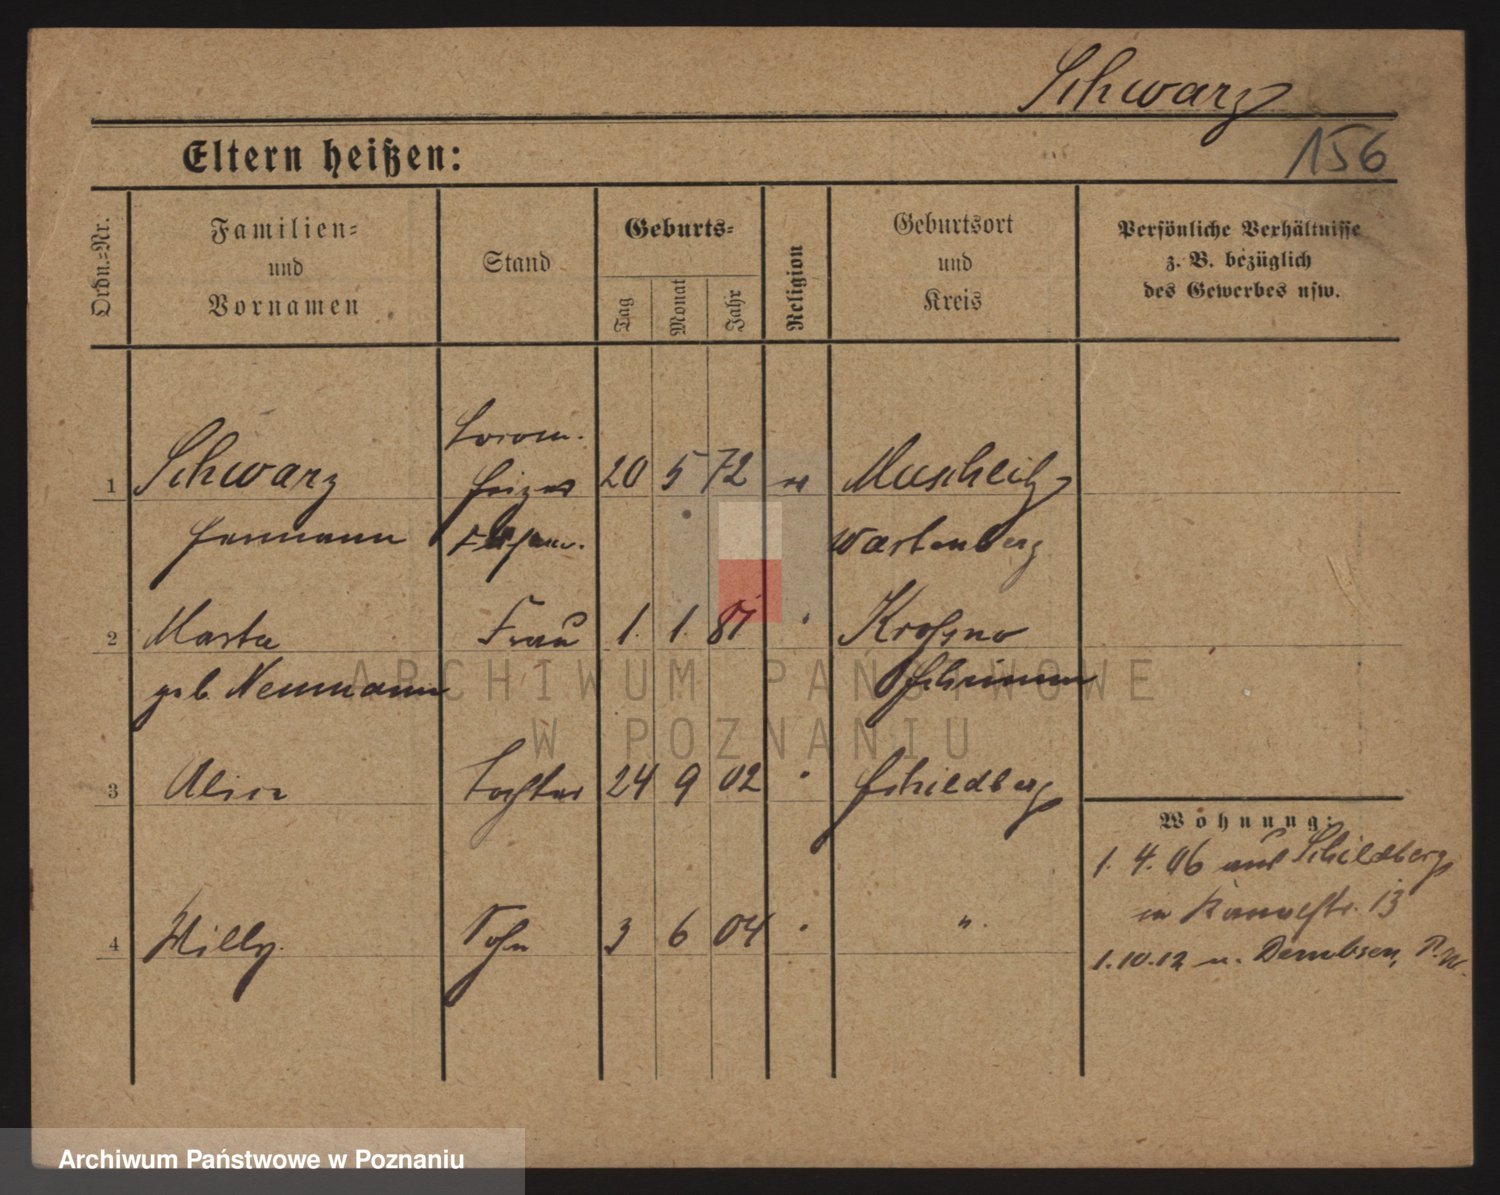 Schwarz
Eltern heißen:
156
Ordn.-Nr.
Familien-
und
Vornamen
Stand
Geburts-
Tag
Monat
Jahr
Religion
Geburtsort
und
Kreis
Persönliche Verhältnisse
z. B. bezüglich
des Gewerbes usw.
Locom.
1 Schwarz heizer 20 5 72 Muschlitz
Hermann Wartenberg
2 Marta Frau 1. 1. 81 " Krosno
geb. Neumann Schrimm
3 Alice Tochter 24 9 02 " Schildberg
Wohnung:
1. 4. 06 aus Schildberg
in Kanalstr. 13
4 Willy. Sohn 3 6 04 " "
1.10.12 n. Dembsen, P. W.
ARCHIWUM PAŃSTWOWE
W POZNANIU
Archiwum Państwowe w Poznaniu